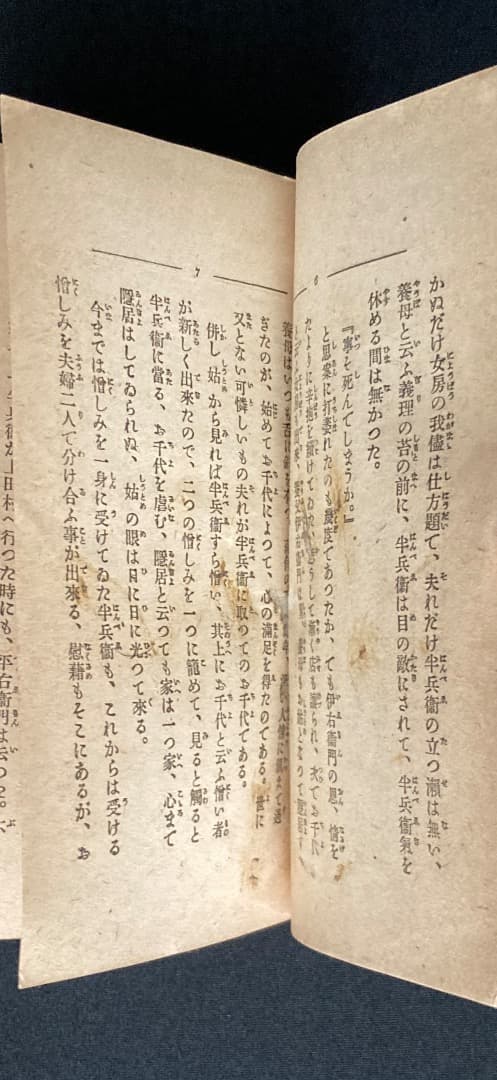 6
かぬだけ女房の我儘は仕方題で、夫れだけ半兵衞の立つ瀬は無い、
養母と云ふ義理の苔の前に、半兵衞は目の敵にされて、半兵衞氣を
休める間は無かつた。
『寧そ死んでしまうか。』
と思案に打萎れたのも幾度であつたか、でも伊右衞門の恩、情を
7
ぎたのが、始めてお千代によつて、心の滿足を得たのである。世に
又とない可憐しいもの夫れが半兵衞に取つてのお千代である。
併し、姑から見れば半兵衞すら憎い、其上にお千代と云ふ憎い者。
が新しく出來たので、二つの憎しみを一つに籠めて、見ると觸ると
半兵衞に當る、お千代を虐む、隱居と云つても家は一つ家、心まで
隱居はしてゐられぬ、姑の眼は日に日に光つて來る。
今までは憎しみを一身に受けてゐた半兵衞も、これからは受ける
憎しみを夫婦二人で分け合ふ事が出來る、慰藉もそこにあるが、お
田村へ行つた時にも、平右衞門は云つた。